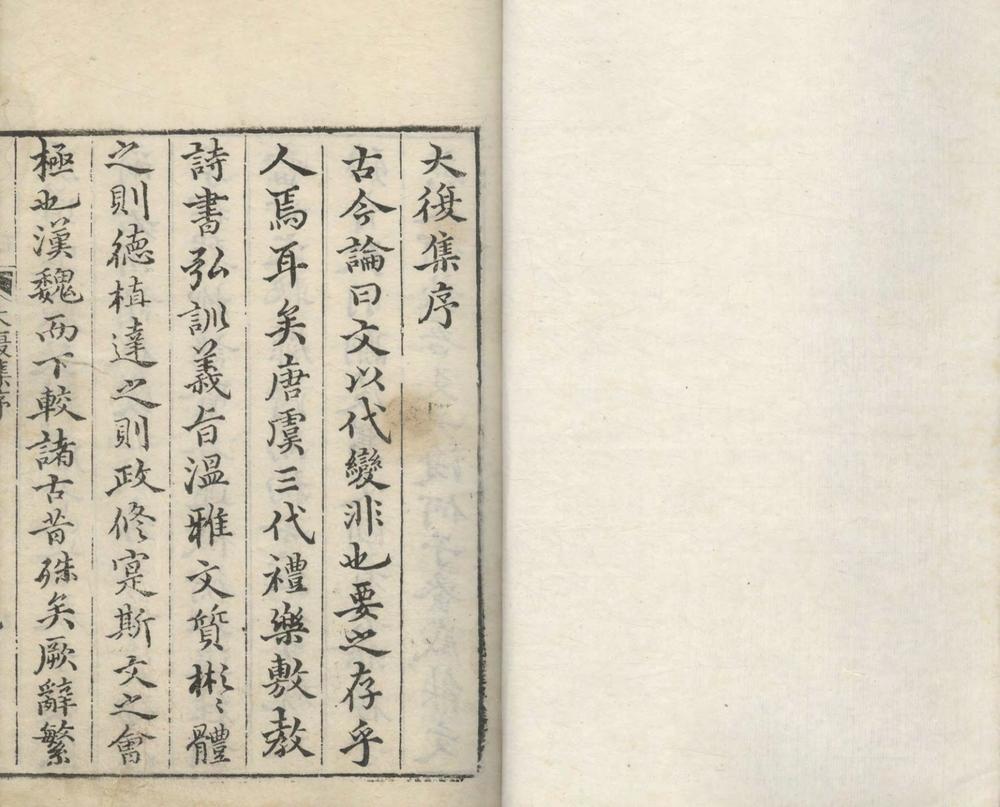 大復集序
古今論曰文以代變非也要之存乎
人焉耳矣唐虞三代禮樂敷教
詩書弘訓義旨溫雅文質彬〻體
之則德植達之則政修寔斯文之會
極也漢魏而下較諸古昔殊矣厥辭繁
大復集序